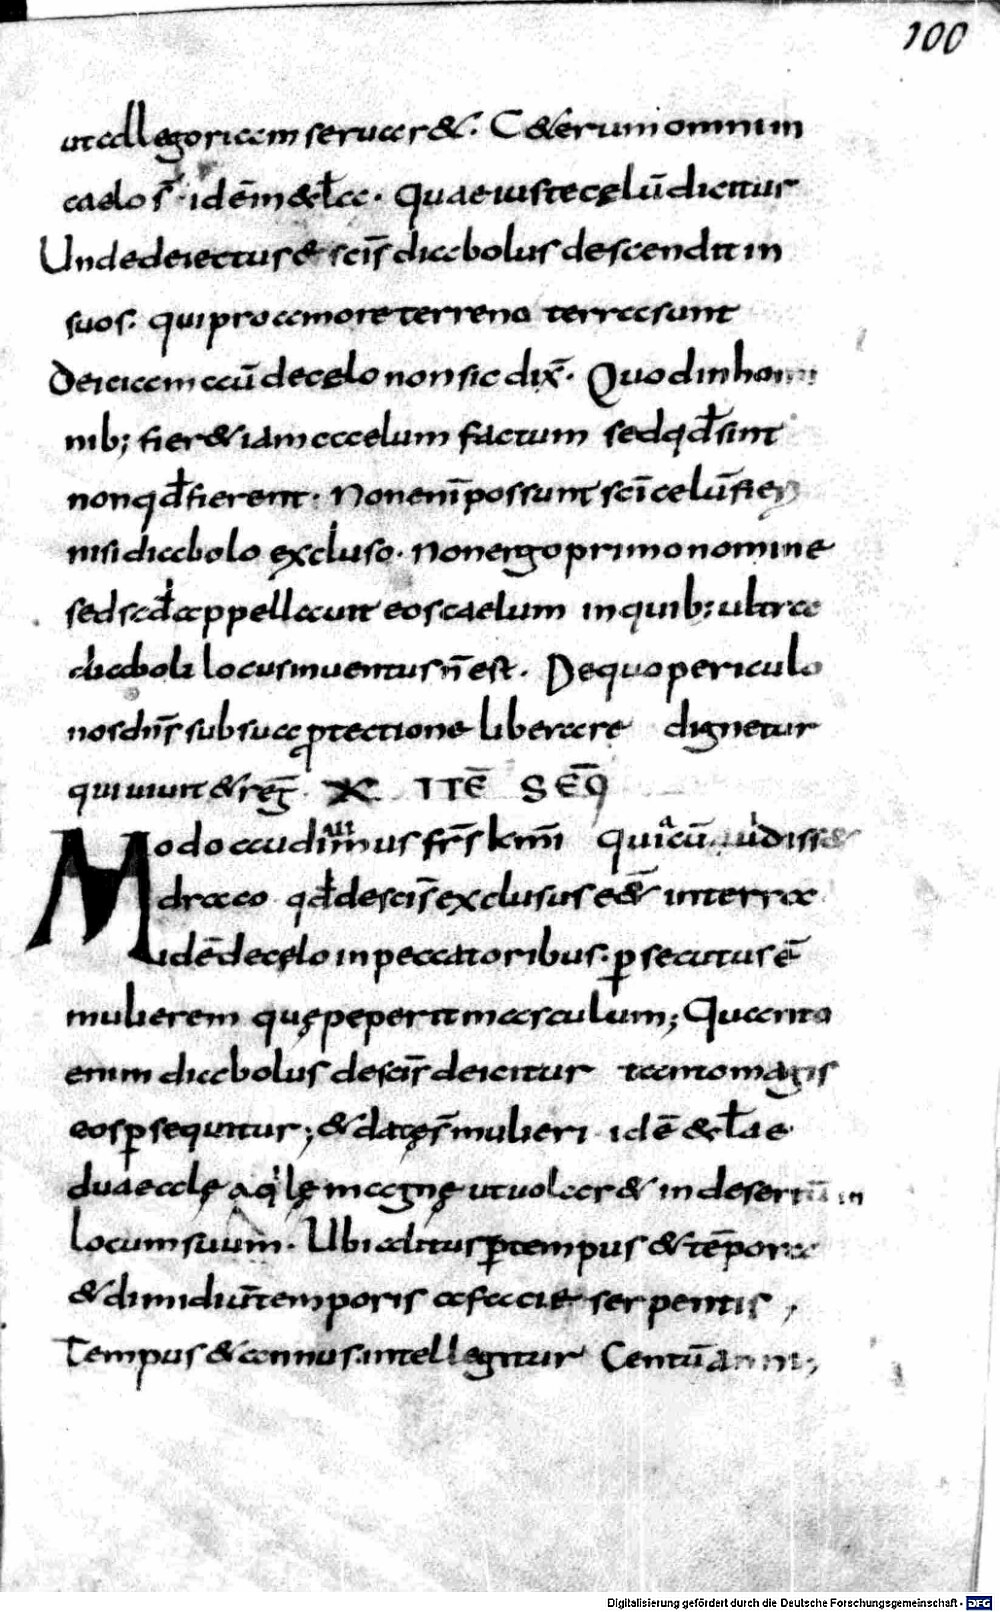 100
ut allegoriam seruar&. C&erum omnim
caelos idē & t̄ra. Quae iuste cęlū dicitur
Unde deiectus & sc̄is diabolus descendit in
suos. qui pro amore terreno terra sunt
Deiciam eū de cęlo non sic dix̄. Quod in homi
nib; fier& iam caelum factum sed qđ sint
non qđ fierent. Non enī possunt sc̄i celū fieri
nisi diabolo excluso. Non ergo primo nomine
sed scđa appellauit eos caelum in quib; ultra
diaboli locus inuentus n̄ est. De quo periculo
nos dn̄s sub sua ꝓtectione liberare dignetur
qui uiuit & reḡ. X ITĒ SEQ̄
Modo audiuimus fr̄s km̄i quia cū uidiss&
draco qđ de sc̄is exclusus e& in terra
idē de cęlo in peccatoribus. ꝑsecutus ē
mulierem quę peperit masculum; Quanto
enim diabolus de sc̄is deicitur tanto magis
eos ꝑsequitur; & datę s̄ mulieri idē & t̄ae
duae alę aq̇lę magnę ut uolar& in desertū in
locum suum. Ubi alitus ꝑ tempus & tēpora
& dimidiū temporis a facie serpentis,
Tempus & annus intellegitur Centū anni;
Digitalisierung gefördert durch die Deutsche Forschungsgemeinschaft - DFG